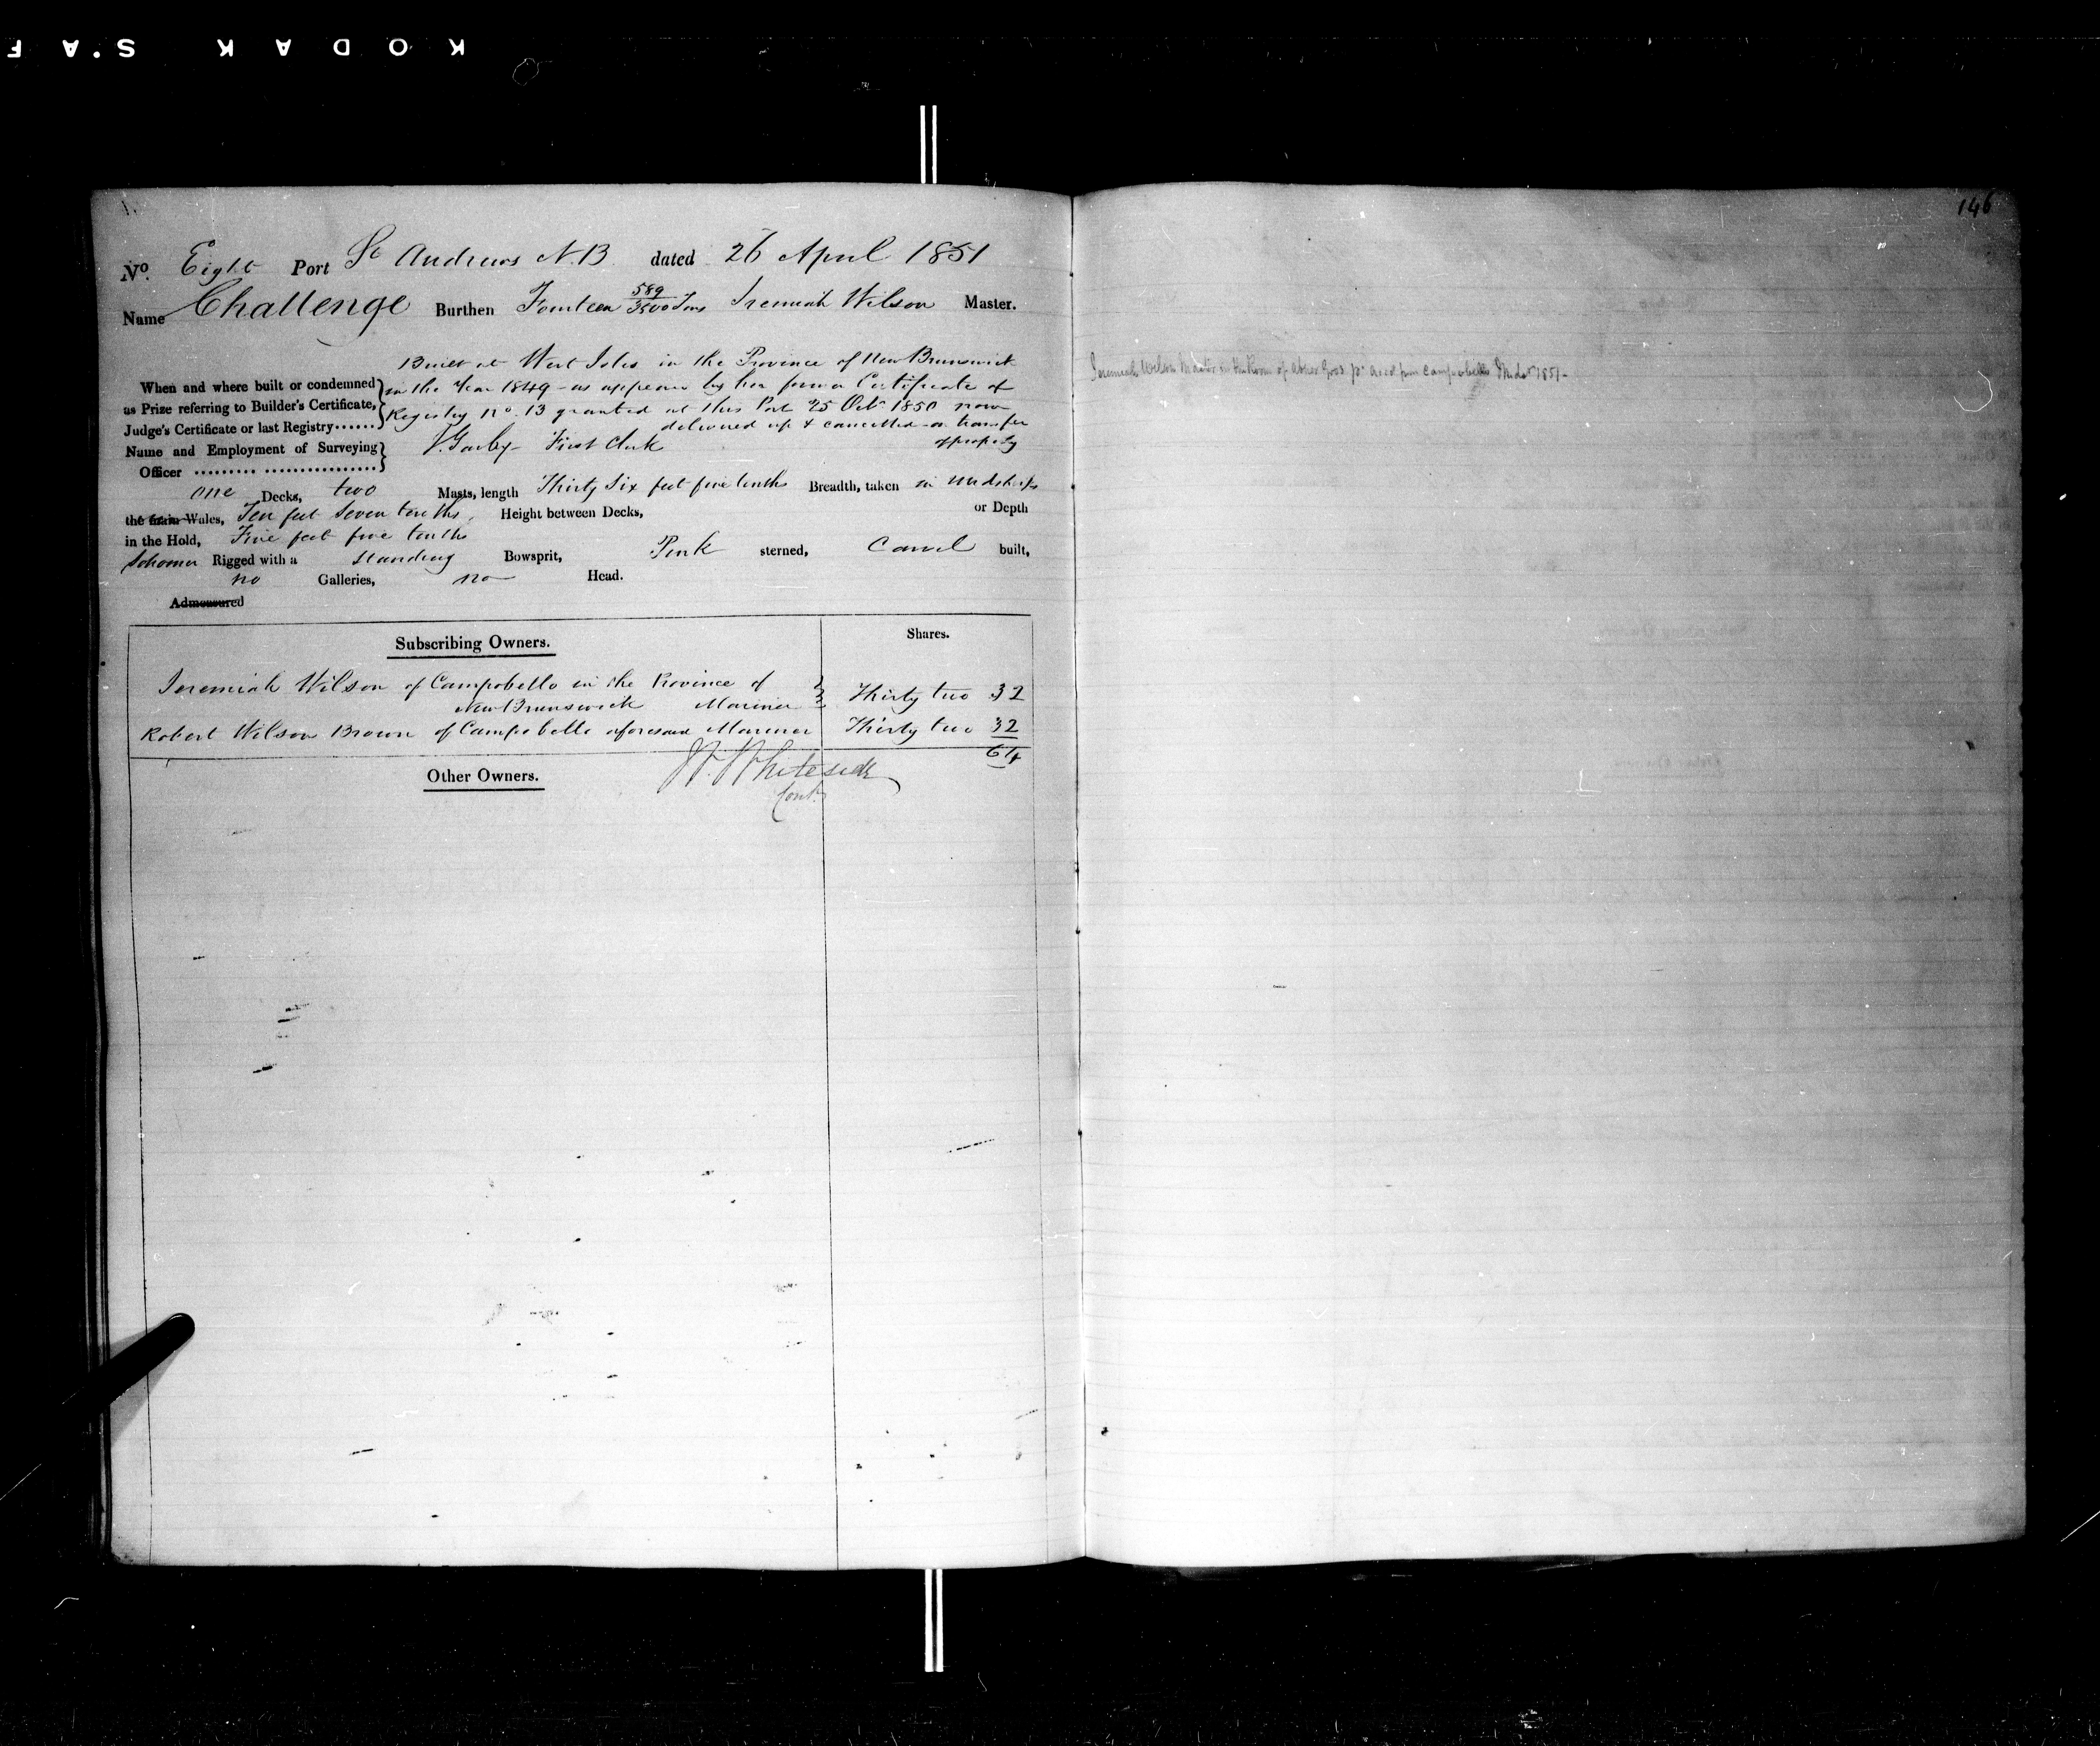 KODAK S.A F
146
No. Eight Port St Andrews N.B. dated 26 April 1851
Name Challenge Burthen Fourteen 589/3500 Tons Jeremiah Wilson Master.
Built at West Isles in the Province of New Brunswick
When and where built or condemned in the Year 1849 - as appears by her former Certificate of
as Prize referring to Builder's Certificate, Registry No. 13 granted at this Port 25 Octr 1850 now
Judge's Certificate or last Registry...... delivered up & cancelled - on transfer
of property
Name and Employment of Surveying First Clerk
Officer ......... ................
one Decks, two Masts, length Thirty Six feet five tenths Breadth, taken in Midships
the main Wales, Ten feet Seven tenths, Height between Decks, or Depth
in the Hold, Five feet five tenths
Schooner Rigged with a Standing Bowsprit, Pink sterned, Carvel built,
no Galleries, no Head.
Admeasured
Subscribing Owners. Shares.
Jeremiah Wilson of Campobello in the Province of
New Brunswick Mariner Thirty two 32
Robert Wilson Brown of Campobello aforesaid Mariner Thirty two 32
64
Other Owners. Whiteside
Cont
Jeremiah Wilson Master in the Room of Abner Campobello 1851 -